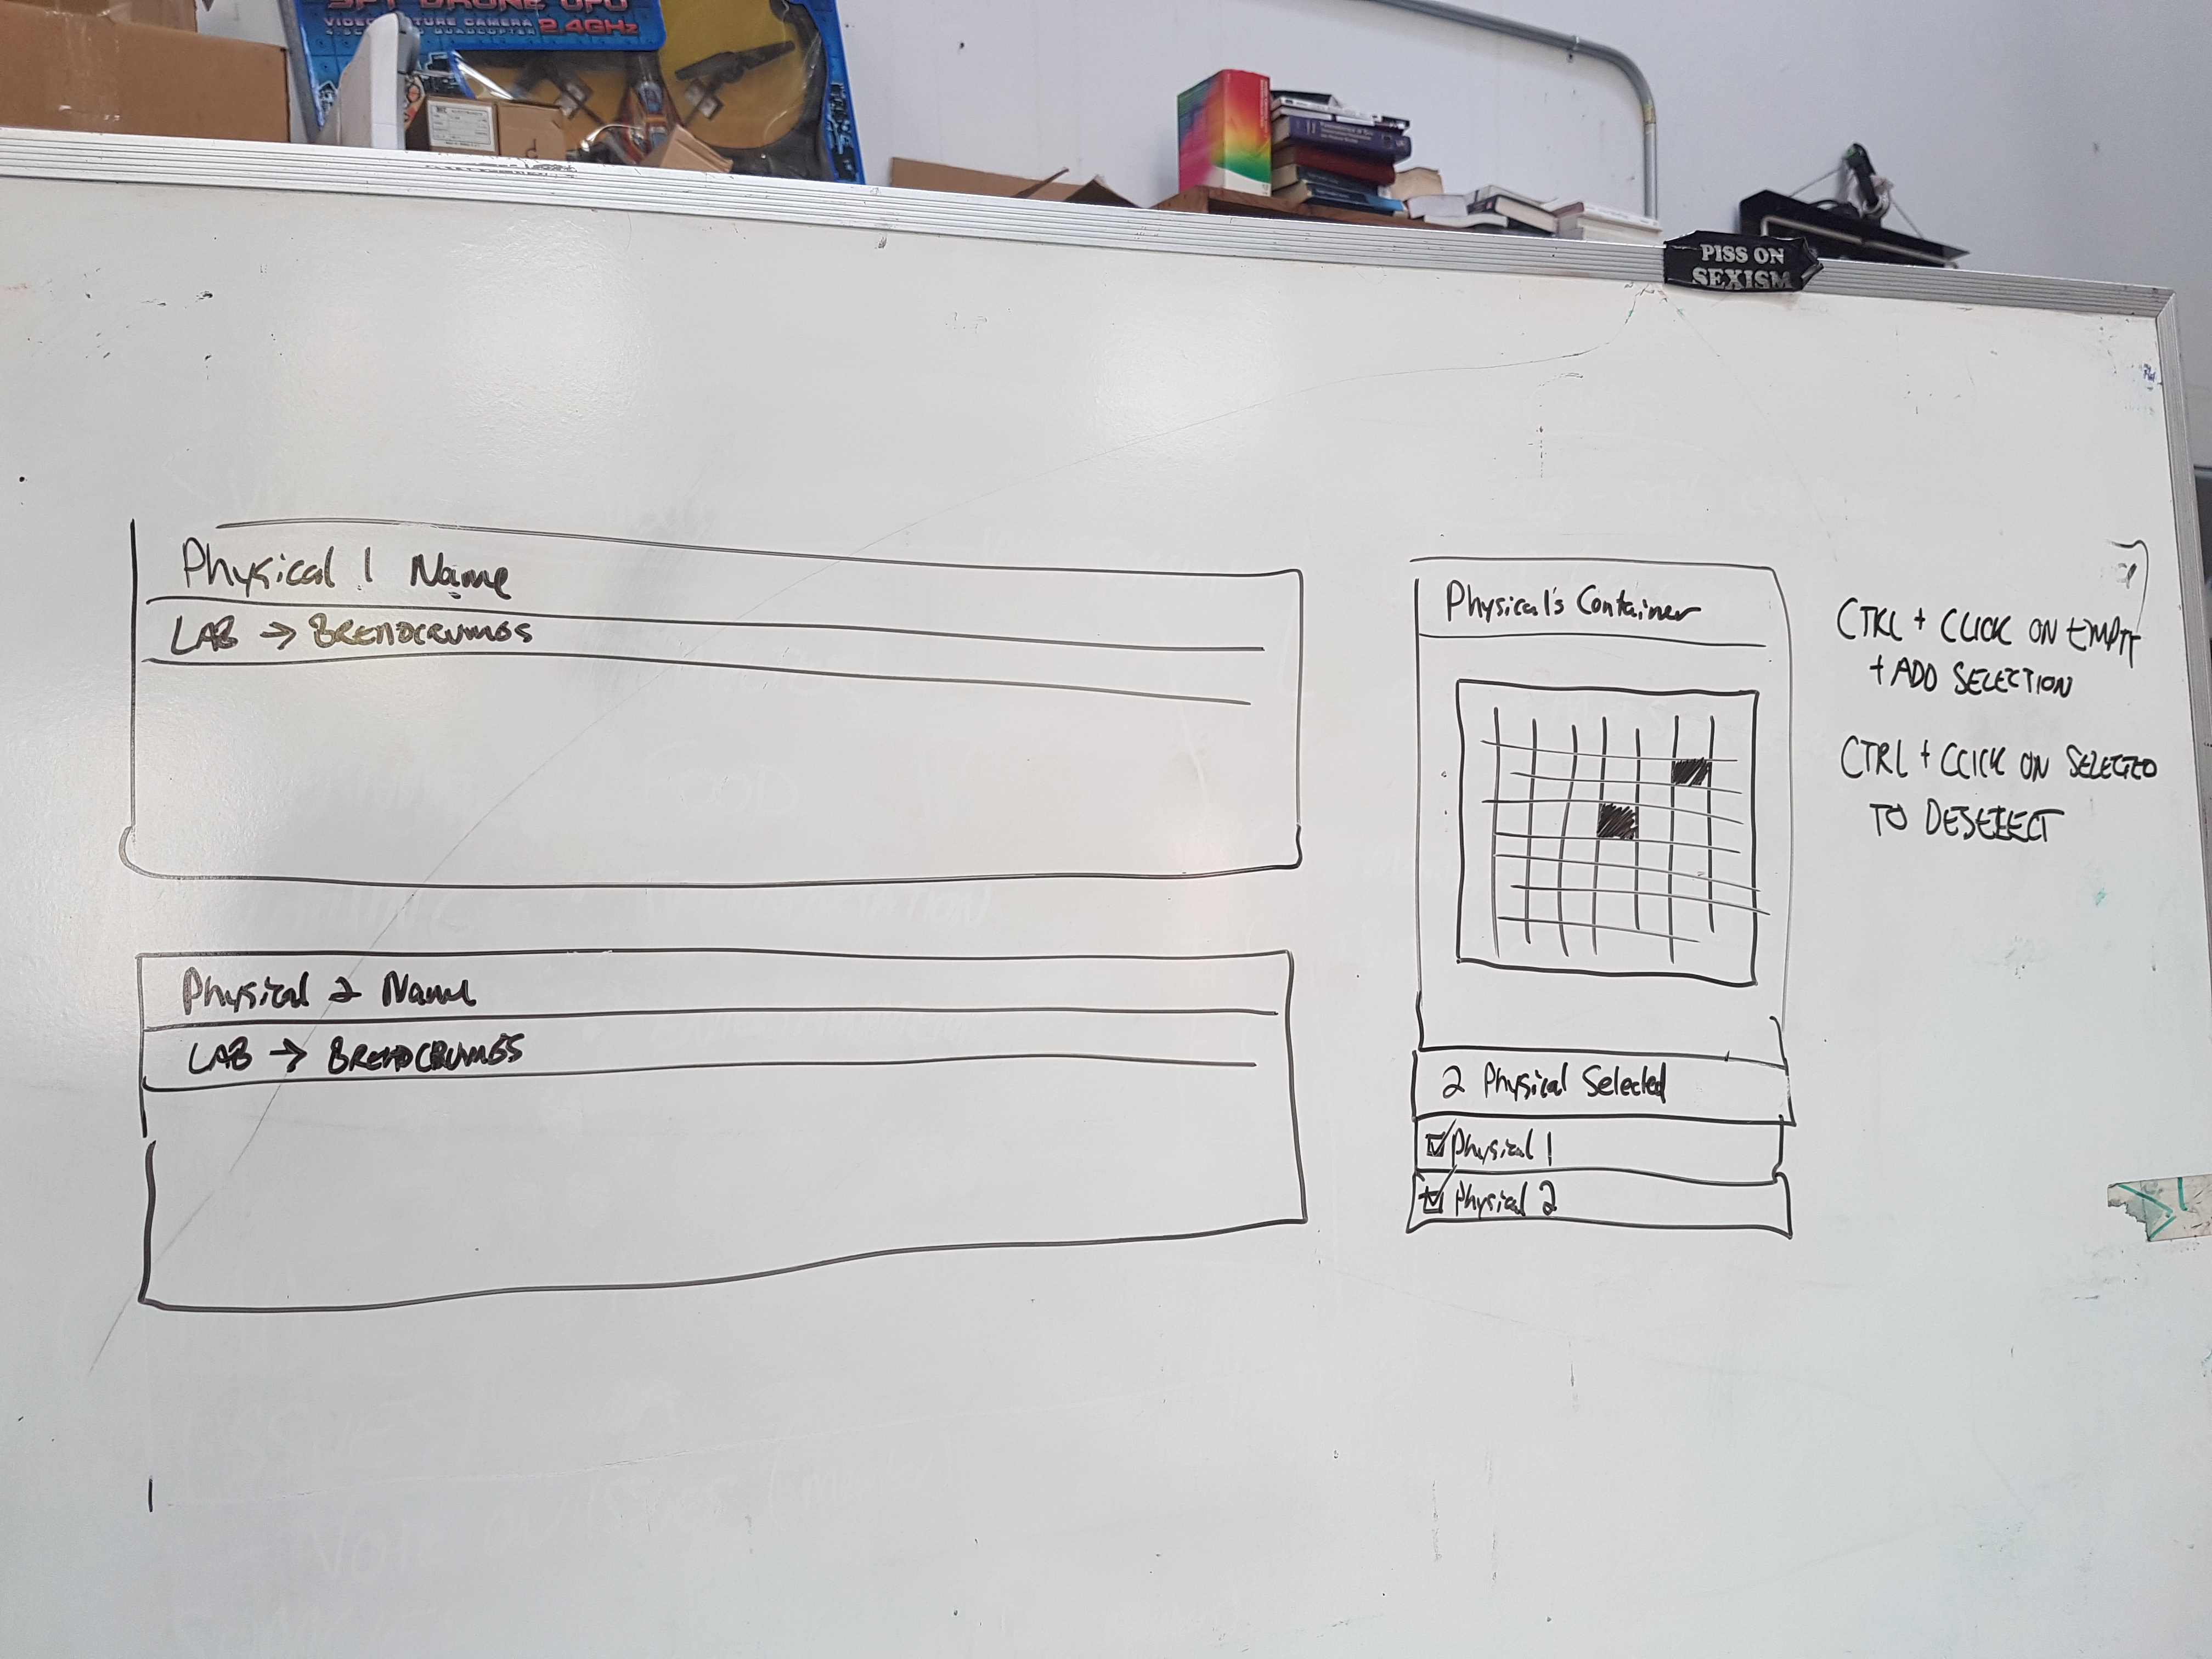 SPY DRONE UFO
VIDEO
TURE CAMERA
QUADCOPTER 2.4GHz
PISS ON
SEXISM
Physical 1 Name
LAB → BREADCRUMBS
Physical 2 Name
LAB → BREADCRUMBS
Physical's Container
2 Physical Selected
Physical 1
Physical 2
CTRL + CLICK ON EMPTY
+ ADD SELECTION
CTRL + CLICK ON SELECTED
TO DESELECT
FOOD
VOTE ON ISSUES